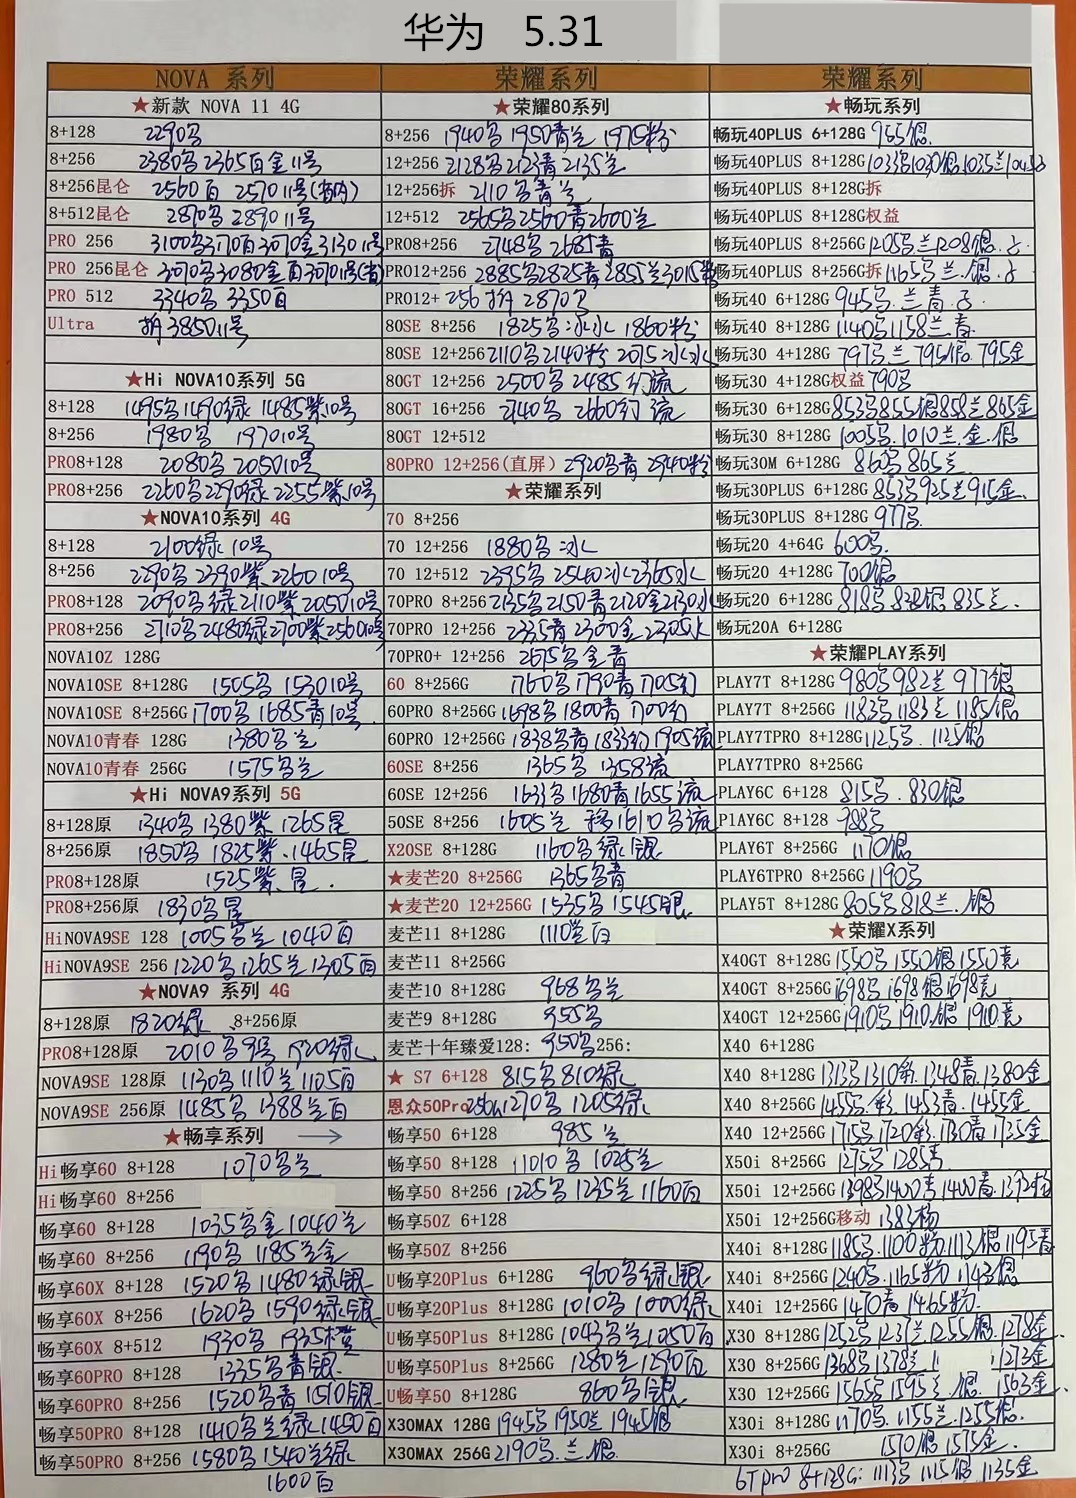 华为 5.31
NOVA 系列
★新款 NOVA 11 4G
8+128 2290乌
8+256 2380乌 2365百金11号
8+256昆仑 2560百 2570 11号
8+512昆仑 2870乌 2890 11号
PRO 256 3100乌
PRO 256昆仑
PRO 512 3340乌 3350百
Ultra 拆 3850 11号
★Hi NOVA10系列 5G
8+128 1495乌1490绿 1485紫10号
8+256 1980乌 1970 10号
PRO8+128 2080乌 2050 10号
PRO8+256 2260乌2290绿 2255紫.10号
★NOVA10系列 4G
8+128 2100绿 10号
8+256 2290乌 2390紫 2260 10号
PRO8+128 2090乌绿2110紫2050 10号
PRO8+256 2710乌2480绿2700紫2560 10号
NOVA10Z 128G
NOVA10SE 8+128G 1505乌 1530 10号
NOVA10SE 8+256G 1700乌 1685青10号
NOVA10青春 128G 1380乌兰
NOVA10青春 256G 1575乌兰
★Hi NOVA9系列 5G
8+128原 1340乌 1380紫 1265昆
8+256原 1850乌 1825紫.1465昆
PRO8+128原 1525紫.昆.
PRO8+256原 1830乌昆
HiNOVA9SE 128 1005乌兰 1040百
HiNOVA9SE 256 1220乌 1265兰 1305百
★NOVA9 系列 4G
8+128原 1820绿 8+256原
PRO8+128原 2010乌9号 1920绿
NOVA9SE 128原 1130乌 1110兰 1105百
NOVA9SE 256原 1485乌 1388兰百
★畅享系列 →
Hi畅享60 8+128 1070乌兰
Hi畅享60 8+256
畅享60 8+128 1035乌金 1040兰
畅享60 8+256 1190乌 1185兰金
畅享60X 8+128 1520乌 1480绿银
畅享60X 8+256 1620乌 1590绿银
畅享60X 8+512 1930乌 1935橙
畅享60PRO 8+128 1335乌青银
畅享60PRO 8+256 1520乌青 1510银
畅享50PRO 8+128 1410乌兰绿 1450百
畅享50PRO 8+256 1580乌 1540兰绿
1600百
荣耀系列
★荣耀80系列
8+256 1940乌 1950青兰 1975粉
12+256 2128乌 2123青 2135兰
12+256拆 2110乌青兰
12+512 2565乌 2560青 2600兰
PRO8+256 2748乌 2685青
PRO12+256 2885乌2825青2855兰3015粉
PRO12+ 256拆 2870乌
80SE 8+256 1825乌冰 1860粉
80SE 12+256 2110乌2140粉 2075冰
80GT 12+256 2500乌 2485幻流
80GT 16+256 2740乌 2660幻流
80GT 12+512
80PRO 12+256(直屏) 2920乌青 2940粉
★荣耀系列
70 8+256
70 12+256 1880乌冰
70 12+512 2395乌 2540冰 2365冰
70PRO 8+256 2135乌2150青2120金2130冰
70PRO 12+256 2335青 2300金 2305冰
70PRO+ 12+256 2675乌金青
60 8+256G 1760乌1790青1705幻
60PRO 8+256G 1698乌 1800青 1700幻
60PRO 12+256G 1838乌青 1833幻 1905流
60SE 8+256 1365乌 1358流
60SE 12+256 1633乌 1680青 1655流
50SE 8+256 1605兰 移1610乌流
X20SE 8+128G 1160乌绿银
★麦芒20 8+256G 1365乌青
★麦芒20 12+256G 1535乌 1545银
麦芒11 8+128G 1110兰百
麦芒11 8+256G
麦芒10 8+128G 968乌兰
麦芒9 8+128G 955乌
麦芒十年臻爱128: 950乌256:
★ S7 6+128 815乌 810绿
恩众50Pro256G 1270乌 1205绿
畅享50 6+128 985兰
畅享50 8+128 11010乌 1025兰
畅享50 8+256 1225乌 1235兰 1160百
畅享50Z 6+128
畅享50Z 8+256
U畅享20Plus 6+128G 960乌绿银
U畅享20Plus 8+128G 1010乌 1000绿
U畅享50Plus 8+128G 1043乌兰1050百
U畅享50Plus 8+256G 1280兰 1290百
U畅享50 8+128G 860乌银
X30MAX 128G 1945乌 1950兰 1945银
X30MAX 256G 2190乌.兰.银
荣耀系列
★畅玩系列
畅玩40PLUS 6+128G 955银
畅玩40PLUS 8+128G 1033乌1030银1035兰
畅玩40PLUS 8+128G拆
畅玩40PLUS 8+128G权益
畅玩40PLUS 8+256G 1205乌兰1208银
畅玩40PLUS 8+256G拆 1165乌兰.银
畅玩40 6+128G 945乌.兰青
畅玩40 8+128G 1140乌1158兰青
畅玩30 4+128G 797乌兰 795银.795金
畅玩30 4+128G权益 790乌
畅玩30 6+128G 853乌855银858兰865金
畅玩30 8+128G 1005乌.1010兰.金.银
畅玩30M 6+128G 860乌 865兰
畅玩30PLUS 6+128G 853乌925兰915金
畅玩30PLUS 8+128G 977乌
畅玩20 4+64G 600乌
畅玩20 4+128G 700银
畅玩20 6+128G 818乌 828银 835兰.
畅玩20A 6+128G
★荣耀PLAY系列
PLAY7T 8+128G 980乌982兰 977银
PLAY7T 8+256G 1183乌 1183兰 1185银
PLAY7TPRO 8+128G 1125乌.1125银
PLAY7TPRO 8+256G
PLAY6C 6+128 815乌.830银
PLAY6C 8+128 988乌
PLAY6T 8+256G 1170银
PLAY6TPRO 8+256G 1190乌
PLAY5T 8+128G 805乌 818兰.银
★荣耀X系列
X40GT 8+128G 1550乌 1550银 1550竞
X40GT 8+256G 1698乌 1698银 1698竞
X40GT 12+256G 1910乌 1910.银 1910竞
X40 6+128G
X40 8+128G 1313乌1310彩.1348青.1380金
X40 8+256G 1455乌.彩.1453青.1455金
X40 12+256G 1715乌1720彩.1730青1735金
X50i 8+256G 1275乌 1285青
X50i 12+256G 1398乌1400青
X50i 12+256G移动 1383杨
X40i 8+128G 1185乌.1100粉.1113银 1195青
X40i 8+256G 1240乌.1165粉 1143银
X40i 12+256G 1470青 1465粉.
X30 8+128G 1252乌1237兰1255银.1278金
X30 8+256G 1368乌1378兰 1373金
X30 12+256G 1565乌1595兰.银. 1563金
X30i 8+128G 1170乌.1155兰.1255银.
X30i 8+256G 1570银 1575金.
6Tpro 8+128G: 1113乌 1115银 1135金